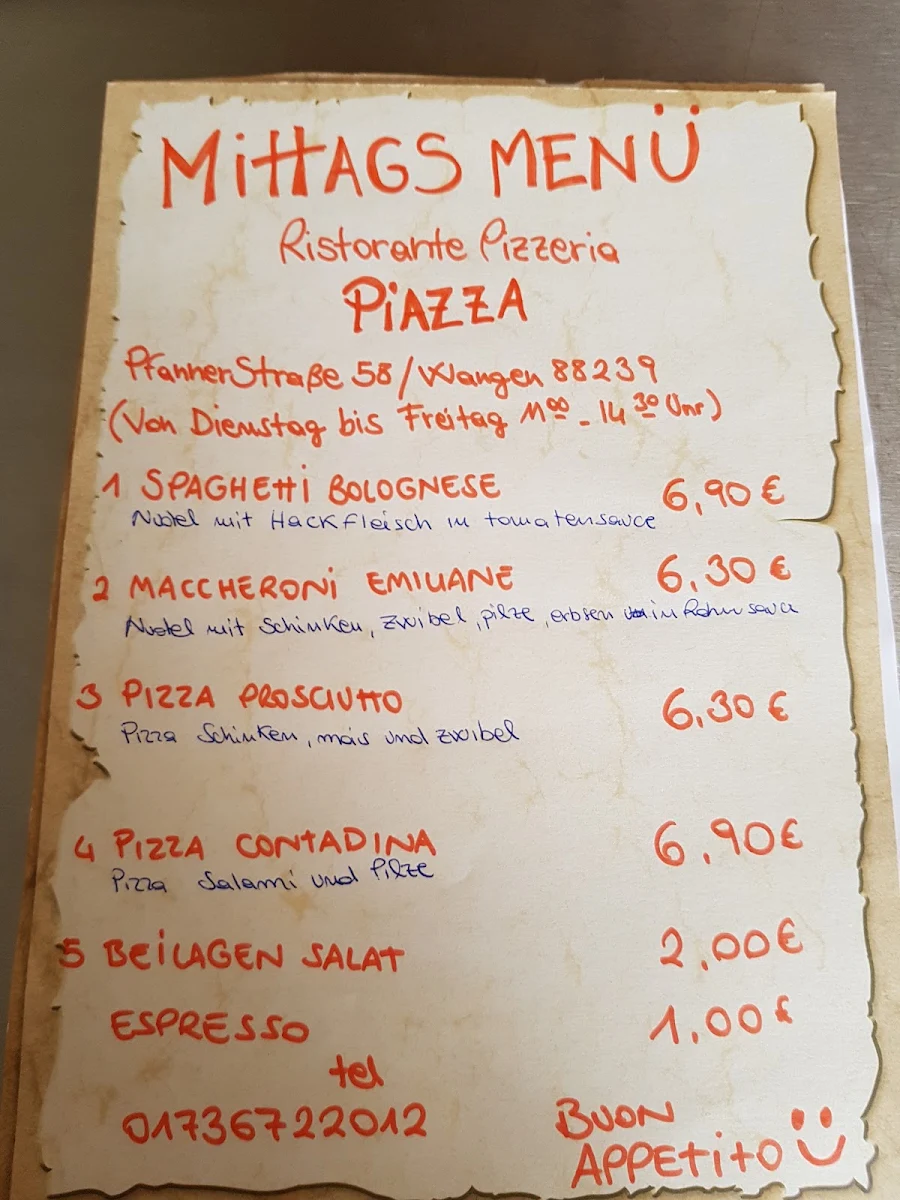 MITTAGS MENÜ
Ristorante Pizzeria
PIAZZA
PfannerStraße 58/Wangen 88239
(Von Dienstag bis Freitag 11⁰⁰ - 14³⁰ Uhr)
1 SPAGHETTI BOLOGNESE 6,90 €
Nudel mit Hackfleisch in tomatensauce
2 MACCHERONI EMILIANE 6,30 €
Nudel mit Schinken, zwibel, pilze, erbsen in Rahm sauce
3 PIZZA PROSCIUTTO 6,30 €
Pizza Schinken, mais und zwibel
4 PIZZA CONTADINA 6,90 €
Pizza Salami und Pilze
5 BEILAGEN SALAT 2,00 €
ESPRESSO 1,00 €
tel
01736722012
BUON
APPETITO